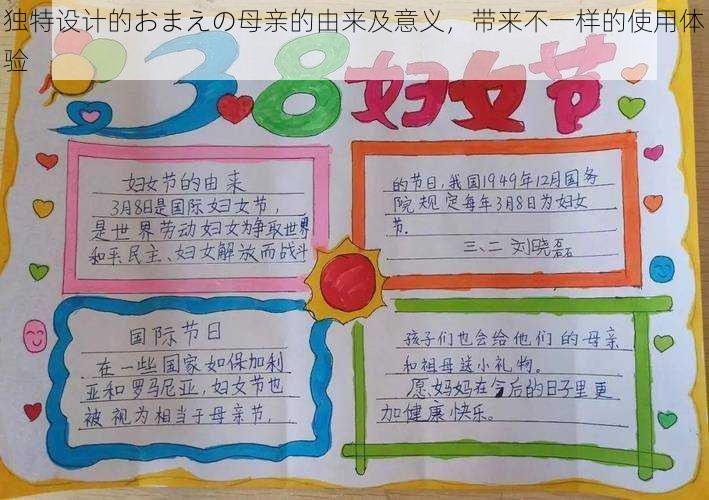 独特设计的おまえの母亲的由来及意义，带来不一样的使用体
验
38妇女节
妇女节的由来
3月8日是国际妇女节，
是世界劳动妇女为争取世界
和平民主、妇女解放而战斗
的节日，我国1949年12月国务
院规定每年3月8日为妇女
节.
三、二 刘晓磊
国际节日
在一些国家如保加利
亚和罗马尼亚，妇女节也
被视为相当于母亲节，
孩子们也会给他们的母亲
和祖母送小礼物。
愿妈妈在今后的日子里更
加健康快乐。